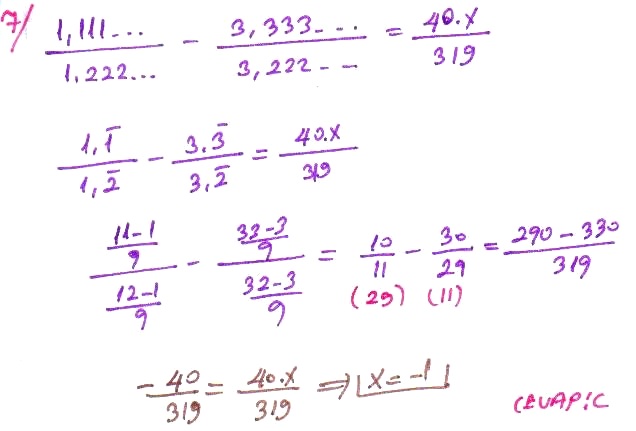 7/ 1,111... / 1,222... - 3,333... / 3,222... = 40.x / 319
1,1̅ / 1,2̅ - 3.3̅ / 3,2̅ = 40.x / 319
(11-1 / 9) / (12-1 / 9) - (33-3 / 9) / (32-3 / 9) = 10 / 11 - 30 / 29 = 290-330 / 319
(29) (11)
-40 / 319 = 40.x / 319 ⇒ x=-1
CEVAP:C